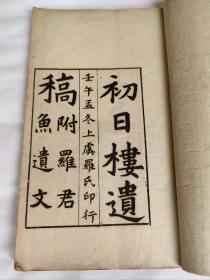 初日樓遺
稿附羅君
魚遺文
壬午孟冬上虞羅氏印行